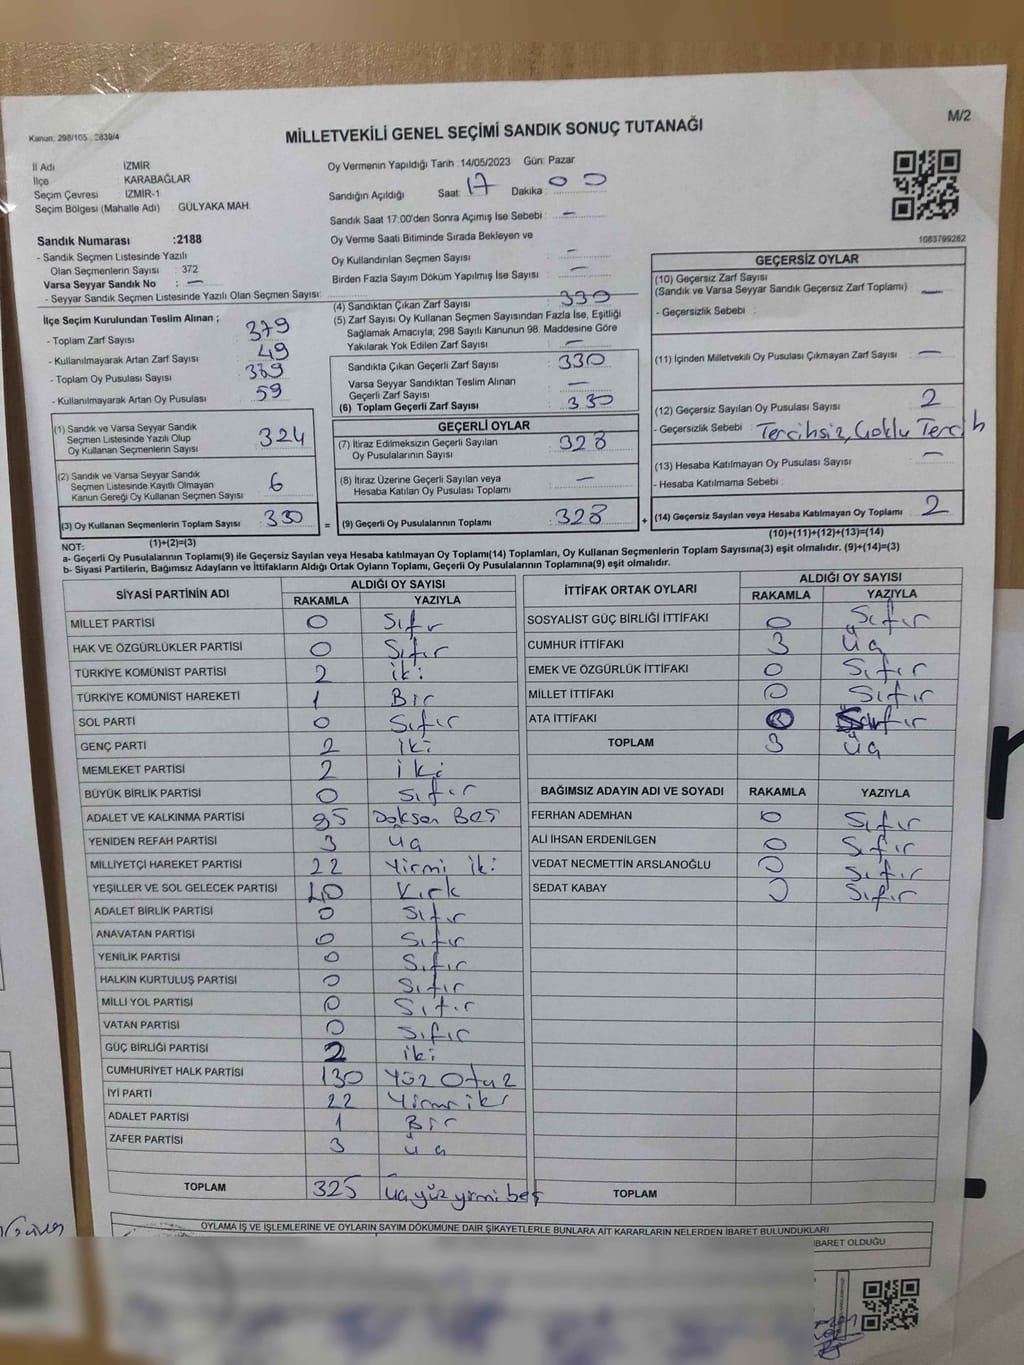 Kanun: 298/105 , 2839/4
M/2
MİLLETVEKİLİ GENEL SEÇİMİ SANDIK SONUÇ TUTANAĞI
İl Adı İZMİR
İlçe KARABAĞLAR
Seçim Çevresi : İZMİR-1
Seçim Bölgesi (Mahalle Adı) : GÜLYAKA MAH.
Oy Vermenin Yapıldığı Tarih :14/05/2023 Gün: Pazar
Sandığın Açıldığı Saat: 17 Dakika : 00
Sandık Saat 17:00'den Sonra Açımış İse Sebebi : -
Oy Verme Saati Bitiminde Sırada Bekleyen ve
Oy Kullandırılan Seçmen Sayısı : -
Birden Fazla Sayım Döküm Yapılmış İse Sayısı : -
1083799282
Sandık Numarası :2188
- Sandık Seçmen Listesinde Yazılı
Olan Seçmenlerin Sayısı : 372
Varsa Seyyar Sandık No : -
- Seyyar Sandık Seçmen Listesinde Yazılı Olan Seçmen Sayısı:
İlçe Seçim Kurulundan Teslim Alınan ;
- Toplam Zarf Sayısı 379
- Kullanılmayarak Artan Zarf Sayısı 49
- Toplam Oy Pusulası Sayısı 389
- Kullanılmayarak Artan Oy Pusulası 59
(1) Sandık ve Varsa Seyyar Sandık
Seçmen Listesinde Yazılı Olup
Oy Kullanan Seçmenlerin Sayısı 324
(2) Sandık ve Varsa Seyyar Sandık
Seçmen Listesinde Kayıtlı Olmayan
Kanun Gereği Oy Kullanan Seçmen Sayısı 6
(3) Oy Kullanan Seçmenlerin Toplam Sayısı : 330
(1)+(2)=(3)
(4) Sandıktan Çıkan Zarf Sayısı : 330
(5) Zarf Sayısı Oy Kullanan Seçmen Sayısından Fazla İse, Eşitliği
Sağlamak Amacıyla; 298 Sayılı Kanunun 98. Maddesine Göre
Yakılarak Yok Edilen Zarf Sayısı : -
Sandıkta Çıkan Geçerli Zarf Sayısı : 330
Varsa Seyyar Sandıktan Teslim Alınan
Geçerli Zarf Sayısı : -
(6) Toplam Geçerli Zarf Sayısı : 330
GEÇERLİ OYLAR
(7) İtiraz Edilmeksizin Geçerli Sayılan
Oy Pusulalarının Sayısı : 328
(8) İtiraz Üzerine Geçerli Sayılan veya
Hesaba Katılan Oy Pusulası Toplamı : -
= (9) Geçerli Oy Pusulalarının Toplamı : 328
GEÇERSİZ OYLAR
(10) Geçersiz Zarf Sayısı
(Sandık ve Varsa Seyyar Sandık Geçersiz Zarf Toplamı) : -
- Geçersizlik Sebebi :
(11) İçinden Milletvekili Oy Pusulası Çıkmayan Zarf Sayısı : -
(12) Geçersiz Sayılan Oy Pusulası Sayısı : 2
- Geçersizlik Sebebi : Tercihsiz, Çoklu Tercih
(13) Hesaba Katılmayan Oy Pusulası Sayısı : -
- Hesaba Katılmama Sebebi :
+ (14) Geçersiz Sayılan veya Hesaba Katılmayan Oy Toplamı : 2
(10)+(11)+(12)+(13)=(14)
NOT:
a- Geçerli Oy Pusulalarının Toplamı(9) ile Geçersiz Sayılan veya Hesaba katılmayan Oy Toplamı(14) Toplamları, Oy Kullanan Seçmenlerin Toplam Sayısına(3) eşit olmalıdır. (9)+(14)=(3)
b- Siyasi Partilerin, Bağımsız Adayların ve İttifakların Aldığı Ortak Oyların Toplamı, Geçerli Oy Pusulalarının Toplamına(9) eşit olmalıdır.
SİYASİ PARTİNİN ADI ALDIĞI OY SAYISI
RAKAMLA YAZIYLA
MİLLET PARTİSİ 0 Sıfır
HAK VE ÖZGÜRLÜKLER PARTİSİ 0 Sıfır
TÜRKİYE KOMÜNİST PARTİSİ 2 iki
TÜRKİYE KOMÜNİST HAREKETİ 1 Bir
SOL PARTİ 0 Sıfır
GENÇ PARTİ 2 iki
MEMLEKET PARTİSİ 2 iki
BÜYÜK BİRLİK PARTİSİ 0 sıfır
ADALET VE KALKINMA PARTİSİ 95 Doksan Beş
YENİDEN REFAH PARTİSİ 3 üç
MİLLİYETÇİ HAREKET PARTİSİ 22 Yirmi iki
YEŞİLLER VE SOL GELECEK PARTİSİ 40 Kırk
ADALET BİRLİK PARTİSİ 0 Sıfır
ANAVATAN PARTİSİ 0 Sıfır
YENİLİK PARTİSİ 0 Sıfır
HALKIN KURTULUŞ PARTİSİ 0 Sıfır
MİLLİ YOL PARTİSİ 0 Sıfır
VATAN PARTİSİ 0 Sıfır
GÜÇ BİRLİĞİ PARTİSİ 2 iki
CUMHURİYET HALK PARTİSİ 130 Yüz Otuz
İYİ PARTİ 22 Yirmi iki
ADALET PARTİSİ 1 Bir
ZAFER PARTİSİ 3 üç
TOPLAM 325 üçyüz yirmi beş
İTTİFAK ORTAK OYLARI ALDIĞI OY SAYISI
RAKAMLA YAZIYLA
SOSYALİST GÜÇ BİRLİĞİ İTTİFAKI 0 Sıfır
CUMHUR İTTİFAKI 3 üç
EMEK VE ÖZGÜRLÜK İTTİFAKI 0 Sıfır
MİLLET İTTİFAKI 0 Sıfır
ATA İTTİFAKI 0 Sıfır
TOPLAM 3 üç
BAĞIMSIZ ADAYIN ADI VE SOYADI RAKAMLA YAZIYLA
FERHAN ADEMHAN 0 Sıfır
ALİ İHSAN ERDENİLGEN 0 Sıfır
VEDAT NECMETTİN ARSLANOĞLU 0 Sıfır
SEDAT KABAY 0 Sıfır
TOPLAM
OYLAMA İŞ VE İŞLEMLERİNE VE OYLARIN SAYIM DÖKÜMÜNE DAİR ŞİKAYETLERLE BUNLARA AİT KARARLARIN NELERDEN İBARET BULUNDUKLARI
İBARET OLDUĞU